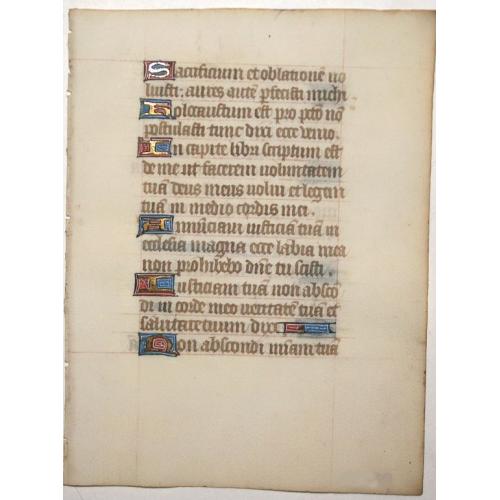 Sacrificium et oblationē no
luisti: aures autē pfecisti michi
Holocaustum est pro pctō nō
postulasti tunc dixi ecce venio.
In capite libri scriptum est
de me ut facerem uoluntatem
tuā deus meus uolui et legem
tuā in medio cordis mei.
Annunciaui iusticiā tuā in
ecclesia magna ecce labia mea
non prohibebo dn̄e tu scisti.
Iusticiam tuā non abscō
di in corde meo ueritatē tuā et
salutare tuum dixi
Non abscondi m̄iam tuā